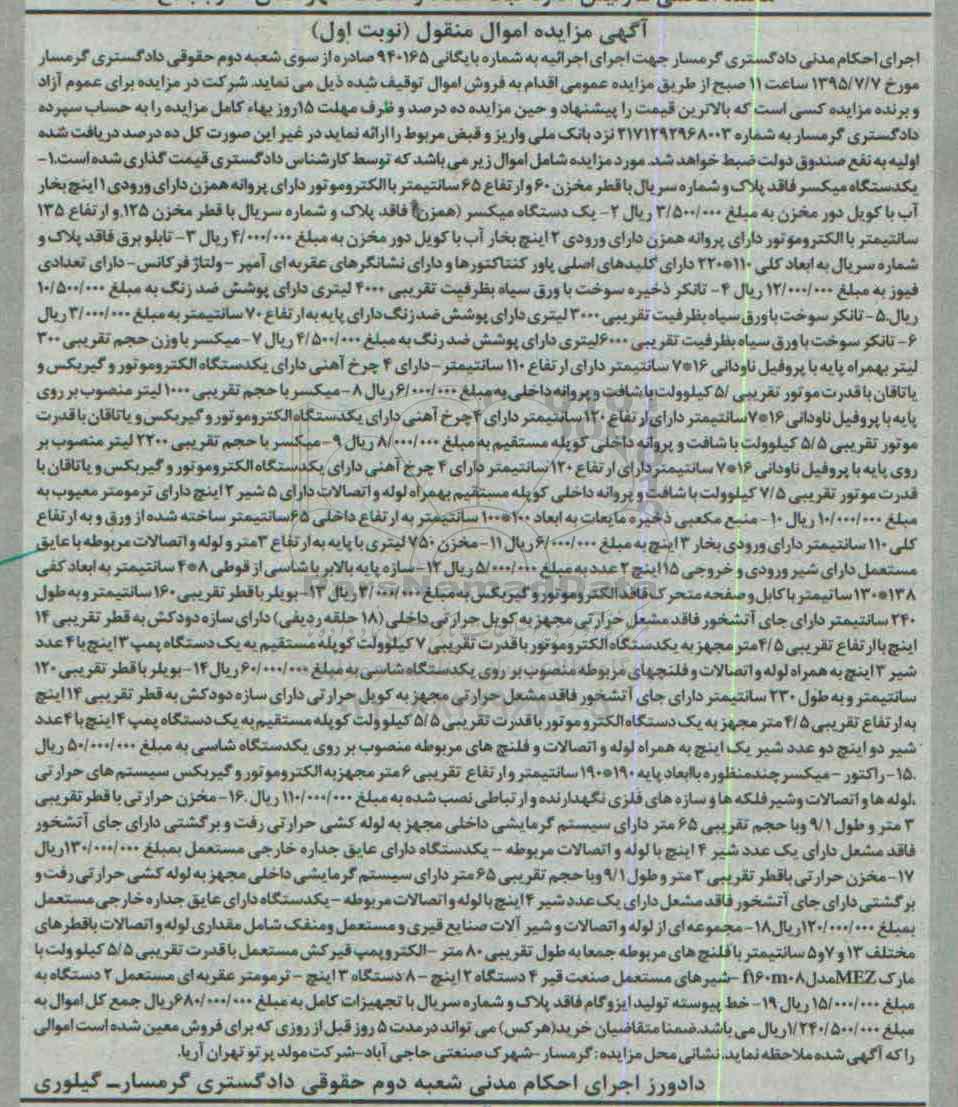 آگهی مزایده اموال منقول (نوبت اول)
اجرای احکام مدنی دادگستری گرمسار جهت اجرای اجرائیه به شماره بایگانی ۹۴۰۱۶۵ صادره از سوی شعبه دوم حقوقی دادگستری گرمسار
مورخ ۱۳۹۵/۷/۷ ساعت ۱۱ صبح از طریق مزایده عمومی اقدام به فروش اموال توقیف شده ذیل می نماید. شرکت در مزایده برای عموم آزاد
و برنده مزایده کسی است که بالاترین قیمت را پیشنهاد و حین مزایده ده درصد و ظرف مهلت ۱۵روز بهاء کامل مزایده را به حساب سپرده
دادگستری گرمسار به شماره ۲۱۷۱۲۹۲۹۶۸۰۰۳ نزد بانک ملی واریز و قبض مربوط را ارائه نماید در غیر این صورت کل ده درصد دریافت شده
اولیه به نفع صندوق دولت ضبط خواهد شد. مورد مزایده شامل اموال زیر می باشد که توسط کارشناس دادگستری قیمت گذاری شده است.۱-
یکدستگاه میکسر فاقد پلاک و شماره سریال با قطر مخزن ۶۰ و ارتفاع ۶۵ سانتیمتر با الکتروموتور دارای پروانه همزن دارای ورودی ۱ اینچ بخار
آب با کویل دور مخزن به مبلغ ۳/۵۰۰/۰۰۰ ریال ۲- یک دستگاه میکسر (همزن) فاقد پلاک و شماره سریال با قطر مخزن ۱۲۵، و ارتفاع ۱۳۵
سانتیمتر با الکتروموتور دارای پروانه همزن دارای ورودی ۲ اینچ بخار آب با کویل دور مخزن به مبلغ ۴/۰۰۰/۰۰۰ ریال ۳- تابلو برق فاقد پلاک و
شماره سریال به ابعاد کلی ۱۱۰*۲۲۰ دارای کلیدهای اصلی پاور کنتاکتورها و دارای نشانگرهای عقربه ای آمپر - ولتاژ فرکانس- دارای تعدادی
فیوز به مبلغ ۱۲/۰۰۰/۰۰۰ ریال ۴- تانکر ذخیره سوخت با ورق سیاه بظرفیت تقریبی ۴۰۰۰ لیتری دارای پوشش ضد زنگ به مبلغ ۱۰/۵۰۰/۰۰۰
ریال.۵- تانکر سوخت با ورق سیاه بظرفیت تقریبی ۳۰۰۰ لیتری دارای پوشش ضد زنگ دارای پایه به ارتفاع ۷۰ سانتیمتر به مبلغ ۳/۰۰۰/۰۰۰ ریال
۶- تانکر سوخت با ورق سیاه بظرفیت تقریبی ۶۰۰۰لیتری دارای پوشش ضد رنگ به مبلغ ۴/۵۰۰/۰۰۰ ریال ۷- میکسر با وزن حجم تقریبی ۳۰۰
لیتر بهمراه پایه با پروفیل ناودانی ۱۶*۷ سانتیمتر دارای ارتفاع ۱۱۰ سانتیمتر- دارای ۴ چرخ آهنی دارای یکدستگاه الکتروموتور و گیربکس و
یاتاقان با قدرت موتور تقریبی ۵/ کیلوولت با شافت و پروانه داخلی به مبلغ ۶/۰۰۰/۰۰۰ ریال ۸- میکسر با حجم تقریبی ۱۰۰۰ لیتر منصوب بر روی
پایه با پروفیل ناودانی ۱۶*۷ سانتیمتر دارای ارتفاع ۱۲۰ سانتیمتر دارای ۴چرخ آهنی دارای یکدستگاه الکتروموتور و گیربکس و یاتاقان با قدرت
موتور تقریبی ۵/۵ کیلوولت با شافت و پروانه داخلی کوپله مستقیم به مبلغ ۸/۰۰۰/۰۰۰ ریال ۹- میکسر با حجم تقریبی ۲۲۰۰ لیتر منصوب بر
روی پایه با پروفیل ناودانی ۱۶*۷ سانتیمتر دارای ارتفاع ۱۲۰ سانتیمتر دارای ۴ چرخ آهنی دارای یکدستگاه الکتروموتور و گیربکس و یاتاقان با
قدرت موتور تقریبی ۷/۵ کیلوولت با شافت و پروانه داخلی کوپله مستقیم بهمراه لوله و اتصالات دارای ۵ شیر ۲ اینچ دارای ترمومتر معیوب به
مبلغ ۱۰/۰۰۰/۰۰۰ ریال ۱۰- منبع مکعبی ذخیره مایعات به ابعاد ۱۰۰*۱۰۰ سانتیمتر به ارتفاع داخلی ۶۵سانتیمتر ساخته شده از ورق و به ارتفاع
کلی ۱۱۰ سانتیمتر دارای ورودی بخار ۳ اینچ به مبلغ ۶/۰۰۰/۰۰۰ ریال ۱۱- مخزن ۷۵۰ لیتری با پایه به ارتفاع ۳متر و لوله و اتصالات مربوطه با عایق
مستعمل دارای شیر ورودی و خروجی ۱۵ اینچ ۲ عدد به مبلغ ۵/۰۰۰/۰۰۰ ریال ۱۲- سازه پایه بالابر با شاسی از قوطی ۸*۴ سانتیمتر به ابعاد کفی
۱۳۸*۱۳۰ ساتیمتر با کابل و صفحه متحرک فاقد الکتروموتور و گیربکس به مبلغ ۳/۰۰۰/۰۰۰ ریال ۱۳- بویلر با قطر تقریبی ۱۶۰ سانتیمتر و به طول
۲۴۰ سانتیمتر دارای جای آتشخور فاقد مشعل حرارتی مجهز به کویل حرارتی داخلی (۱۸ حلقه ردیفی) دارای سازه دودکش به قطر تقریبی ۱۴
اینچ با ارتفاع تقریبی ۴/۵متر مجهز به یکدستگاه الکتروموتور با قدرت تقریبی ۷ کیلوولت کوپله مستقیم به یک دستگاه پمپ ۳ اینچ با ۴ عدد
شیر ۳ اینچ به همراه لوله و اتصالات و فلنچهای مربوطه منصوب بر روی یکدستگاه شاسی به مبلغ ۶۰/۰۰۰/۰۰۰ ریال ۱۴- بویلر با قطر تقریبی ۱۲۰
سانتیمتر و به طول ۲۳۰ سانتیمتر دارای جای آتشخور فاقد مشعل حرارتی مجهز به کویل حرارتی دارای سازه دودکش به قطر تقریبی ۱۴ اینچ
به ارتفاع تقریبی ۴/۵ متر مجهز به یک دستگاه الکتروموتور با قدرت تقریبی ۵/۵ کیلوولت کوپله مستقیم به یک دستگاه پمپ ۴ اینچ با ۴ عدد
شیر دو اینچ دو عدد شیر یک اینچ به همراه لوله و اتصالات و فلنچ های مربوطه منصوب بر روی یکدستگاه شاسی به مبلغ ۵۰/۰۰۰/۰۰۰ ریال
.۱۵- راکتور - میکسر چندمنظوره با ابعاد پایه ۱۹۰*۱۹۰ سانتیمتر و ارتفاع تقریبی ۶ متر مجهز به الکتروموتور و گیربکس سیستم های حرارتی
،لوله ها و اتصالات و شیر فلکه ها و سازه های فلزی نگهدارنده و ارتباطی نصب شده به مبلغ ۱۱۰/۰۰۰/۰۰۰ ریال .۱۶- مخزن حرارتی با قطر تقریبی
۳ متر و طول ۹/۱ وبا حجم تقریبی ۶۵ متر دارای سیستم گرمایشی داخلی مجهز به لوله کشی حرارتی رفت و برگشتی دارای جای آتشخور
فاقد مشعل دارای یک عدد شیر ۴ اینچ با لوله و اتصالات مربوطه - یکدستگاه دارای عایق جداره خارجی مستعمل بمبلغ ۱۳۰/۰۰۰/۰۰۰ریال
۱۷- مخزن حرارتی باقطر تقریبی ۳ متر و طول ۹/۱ وبا حجم تقریبی ۶۵ متر دارای سیستم گرمایشی داخلی مجهز به لوله کشی حرارتی رفت و
برگشتی دارای جای آتشخور فاقد مشعل دارای یک عدد شیر ۴ اینچ با لوله و اتصالات مربوطه - یکدستگاه دارای عایق جداره خارجی مستعمل
بمبلغ ۱۲۰/۰۰۰/۰۰۰ریال ۱۸- مجموعه ای از لوله و اتصالات و شیر آلات صنایع قیری و مستعمل ومنفک شامل مقداری لوله و اتصالات باقطرهای
مختلف ۱۳ و ۷و۵ سانتیمتر با فلنچ های مربوطه جمعا به طول تقریبی ۸۰ متر - الکتروپمپ قیرکش مستعمل با قدرت تقریبی ۵/۵ کیلوولت با
مارک MEZمدل f۱۶۰m۰۸ -شیرهای مستعمل صنعت قیر ۴ دستگاه ۲ اینچ - ۸ دستگاه ۳ اینچ - ترمومتر عقربه ای مستعمل ۲ دستگاه به
مبلغ ۱۵/۰۰۰/۰۰۰ ریال ۱۹- خط پیوسته تولید ایزوگام فاقد پلاک و شماره سریال با تجهیزات کامل به مبلغ ۶۸۰/۰۰۰/۰۰۰ریال جمع کل اموال به
مبلغ ۱/۲۴۰/۵۰۰/۰۰۰ریال می باشد.ضمنا متقاضیان خرید(هرکس) می تواند درمدت ۵ روز قبل از روزی که برای فروش معین شده است اموالی
را که آگهی شده ملاحظه نماید. نشانی محل مزایده: گرمسار -شهرک صنعتی حاجی آباد-شرکت مولد پرتو تهران آریا.
دادورز اجرای احکام مدنی شعبه دوم حقوقی دادگستری گرمسار- گیلوری
ParsNamadData